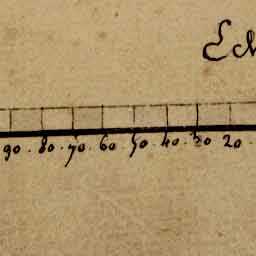 90 . 80 . 70 . 60 . 50 . 40 . 30 20 .